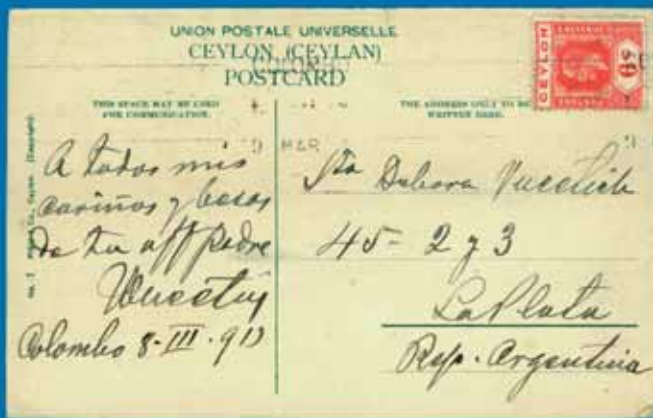 UNION POSTALE UNIVERSELLE
CEYLON (CEYLAN)
POSTCARD
THIS SPACE MAY BE USED
FOR COMMUNICATION.
THE ADDRESS ONLY TO BE
WRITTEN HERE.
CEYLON
MAR
A todos mis
cariños y besos
de tu aff padre
Vucetich
Colombo 8-III-913
Sta Debora Vucetich
45 - 2 y 3
La Plata
Rep. Argentina